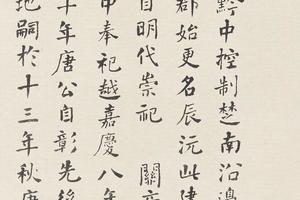 黔中控制楚南沿邊
郡始更名辰沅此建
自明代崇祀　關
中奉祀越嘉慶八年
十年唐公自彰先後
地嗣於十三年秋唐